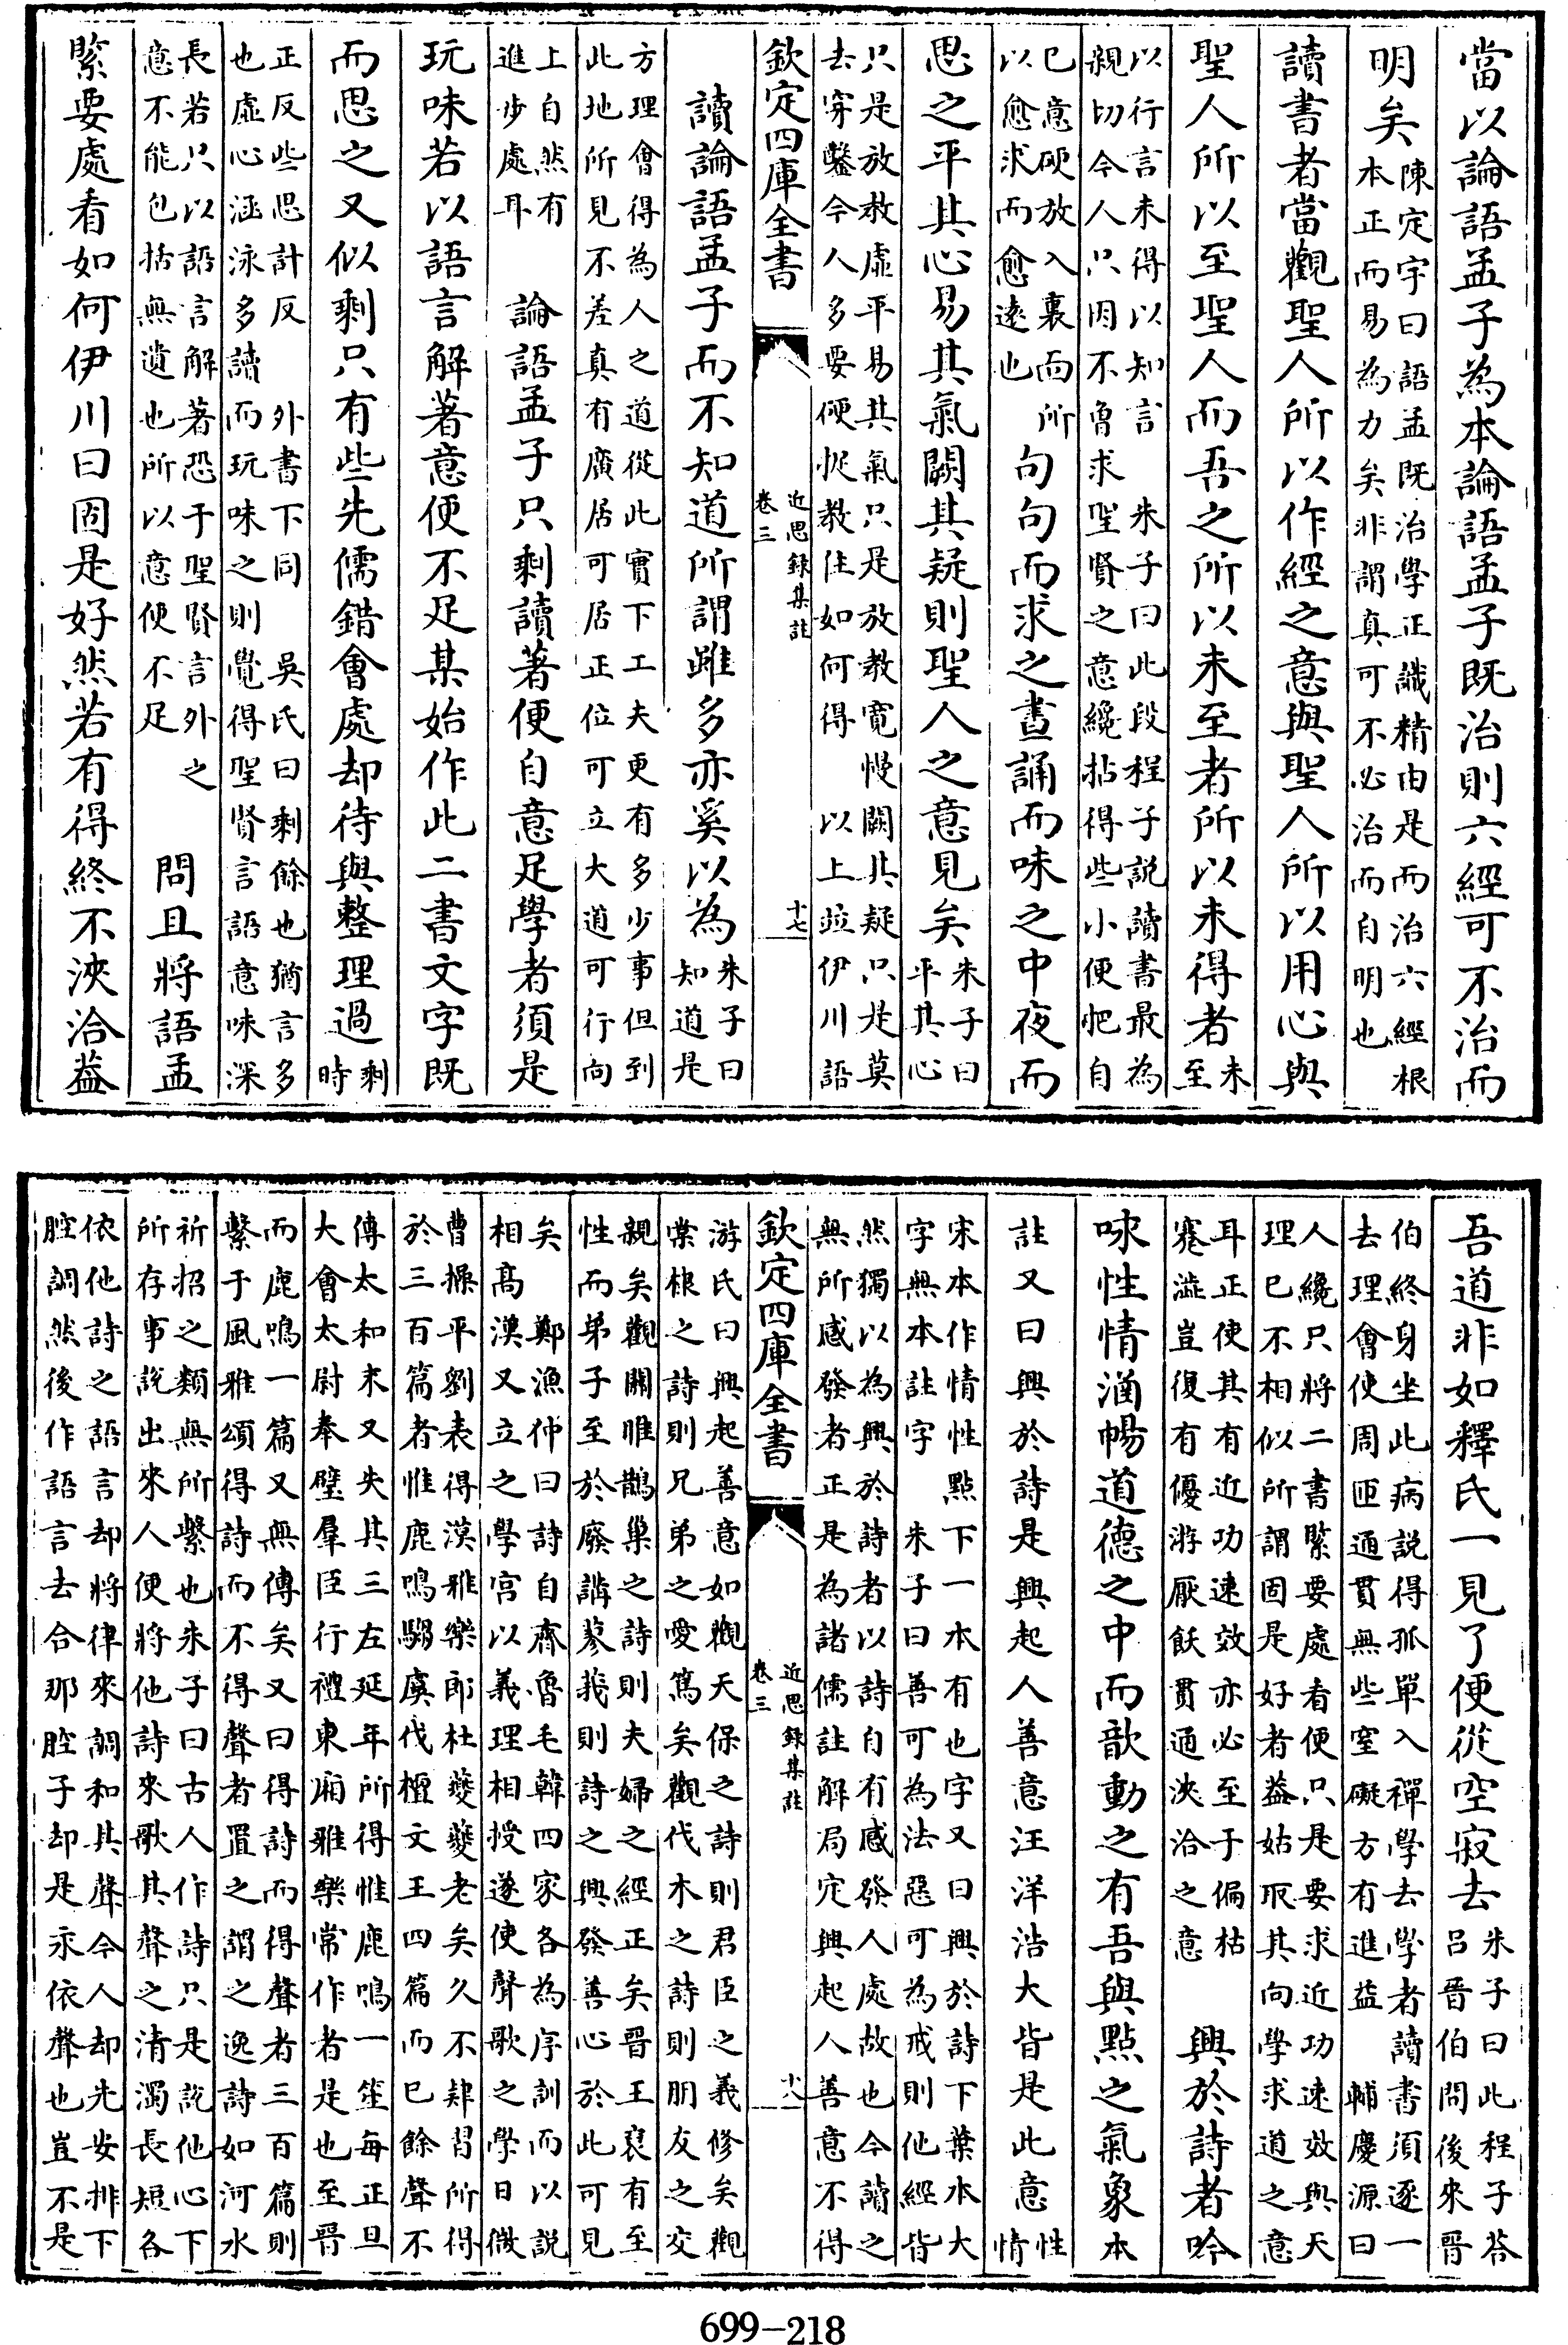 當以論語孟子為本論語孟子既治則六經可不治而
明矣
陳定宇曰語孟既治學正識精由是而治六經根
本正而易為力矣非謂真可不必治而自明也
讀書者當觀聖人所以作經之意與聖人所以用心與
聖人所以至聖人而吾之所以未至者所以未得者
未
至
以行言未得以知言　朱子曰此段程子説讀書最為
親切今人只因不曾求聖賢之意纔拈得些小便把自
已意硬放入裏面所
以愈求而愈遠也
句句而求之晝誦而味之中夜而
思之平其心易其氣闕其疑則聖人之意見矣
朱子曰
平其心
只是放教虛平易其氣只是放教寛慢闕其疑只是莫
去穿鑿今人多要硬捉教住如何得　以上並伊川語
欽定四庫全書
近思録集註
卷三
十七
讀論語孟子而不知道所謂雖多亦奚以為
朱子曰
知道是
方理會得為人之道從此實下工夫更有多少事但到
此地所見不差真有廣居可居正位可立大道可行向
上自然有
進步處耳
論語孟子只剩讀著便自意足學者須是
玩味若以語言解著意便不足某始作此二書文字既
而思之又似剩只有些先儒錯會處却待與整理過
剩
時
正反些思計反　外書下同　吳氏曰剩餘也猶言多
也虛心涵泳多讀而玩味之則覺得聖賢言語意味深
長若只以語言解著恐于聖賢言外之
意不能包括無遺也所以意便不足
問且將語孟
緊要處看如何伊川曰固是好然若有得終不浹洽葢
吾道非如釋氏一見了便從空寂去
朱子曰此程子荅
呂晉伯問後來晉
伯終身坐此病説得孤單入禪學去學者讀書須逐一
去理會使周匝通貫無些窒礙方有進益　輔慶源曰
人纔只將二書緊要處看便只是要求近功速效與天
理已不相似所謂固是好者益姑取其向學求道之意
耳正使其有近功速效亦必至于偏枯
蹇澁豈復有優游厭飫貫通浹洽之意
興於詩者吟
咏性情涵暢道德之中而歆動之有吾與點之氣象
本
註又曰興於詩是興起人善意汪洋浩大皆是此意
性
情
宋本作情性點下一本有也字又曰興於詩下葉本大
字無本註字　朱子曰善可為法惡可為戒則他經皆
然獨以為興於詩者以詩自有感發人處故也今讀之
無所感發者正是為諸儒註解局定興起人善意不得
欽定四庫全書
近思録集註
卷三
十八
游氏曰興起善意如觀天保之詩則君臣之義修矣觀
棠棣之詩則兄弟之愛篤矣觀伐木之詩則朋友之交
親矣觀關雎鵲巢之詩則夫婦之經正矣晉王裒有至
性而弟子至於廢講蓼莪則詩之興發善心於此可見
矣　鄭漁仲曰詩自齊魯毛韓四家各為序訓而以説
相髙漢又立之學宫以義理相授遂使聲歌之學日㣲
曹操平劉表得漢雅樂郎杜夔夔老矣久不肄習所得
於三百篇者惟鹿鳴騶虞伐檀文王四篇而已餘聲不
傳太和末又失其三左延年所得惟鹿鳴一笙每正旦
大會太尉奉璧羣臣行禮東廂雅樂常作者是也至晉
而鹿鳴一篇又無傳矣又曰得詩而得聲者三百篇則
繫于風雅頌得詩而不得聲者置之謂之逸詩如河水
祈招之類無所繫也朱子曰古人作詩只是説他心下
所存事説出來人便將他詩來歌其聲之清濁長短各
依他詩之語言却將律來調和其聲今人却先安排下
腔調然後作語言去合那腔子却是永依聲也豈不是
699-218